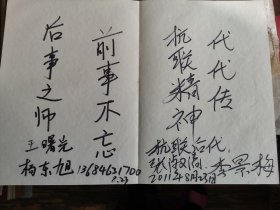 前事不忘
后事之师
王曙光
杨东旭 13684631700
代代传
抗联精神
抗联后代
2011年8月23日 李景梅